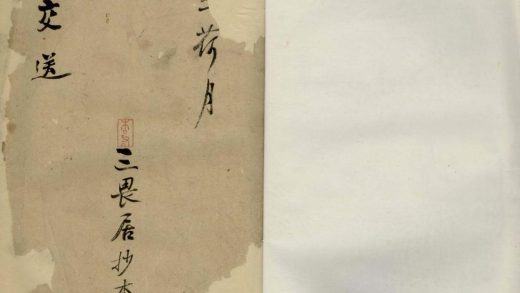 荷月
三畏居抄本
交送